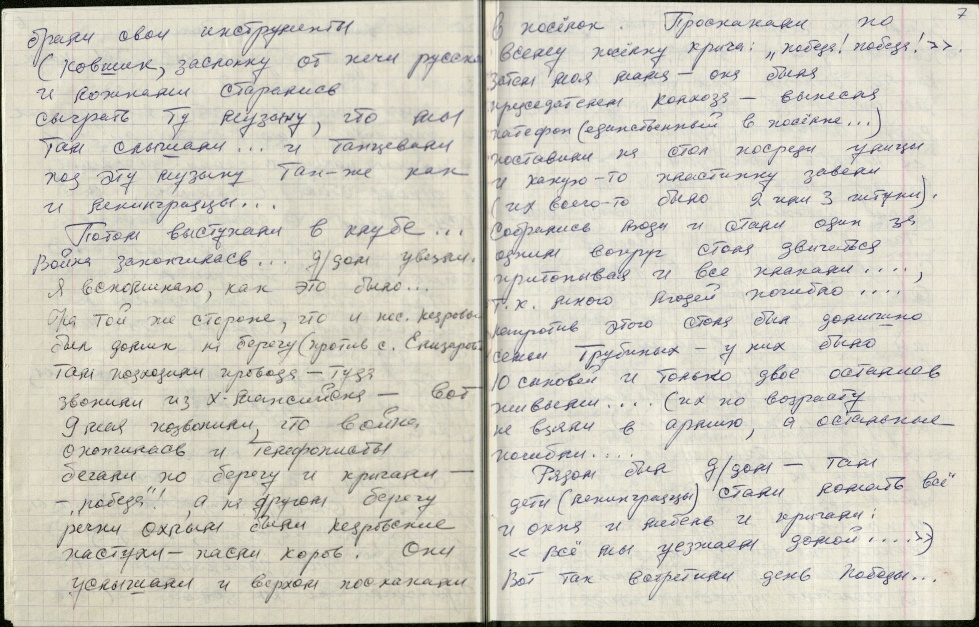 брали свои инструменты
(ковшик, заслонку от печи русской
и ложками старались
сыграть ту музыку, что мы
там слышали... и танцевали
под эту музыку так-же как
и ленинградцы...
Потом выступали в клубе...
Война закончилась... д/дом увезли.
Я вспоминаю, как это было...
На той же стороне, что и пос. Кедровый
был домик на берегу (против с. Елизарово
там подходили провода – туда
звонили из Х-Мансийска – вот
9 мая позвонили, что война
окончилась и телефонисты
бегали по берегу и кричали –
– „победа"! а на другом берегу
речки Охлым были кедровские
пастухи – пасли коров. Они
услышали и верхом поскакали
7
в посёлок. Проскакали по
всему посёлку крича: „победа! победа!>>.
Затем моя мама – она была
председателем колхоза – вынесла
патефон (единственный в посёлке...)
поставили на стол посреди улицы
и какую-то пластинку завели
(их всего-то было 2 или 3 штуки).
Собрались люди и стали один за
одним вокруг стола двигаться
притопывая и все плакали....,
т.к. много людей погибло....,
напротив этого стола был домишко
семьи Трубиных – у них было
10 сыновей и только двое остались
живыми.... (их по возрасту
не взяли в армию, а остальные
погибли....
Рядом был д/дом – там
дети (ленинградцы) стали ломать всё
и окна и мебель и кричали:
<< всё мы уезжаем домой....>>)
Вот так встретили день Победы...